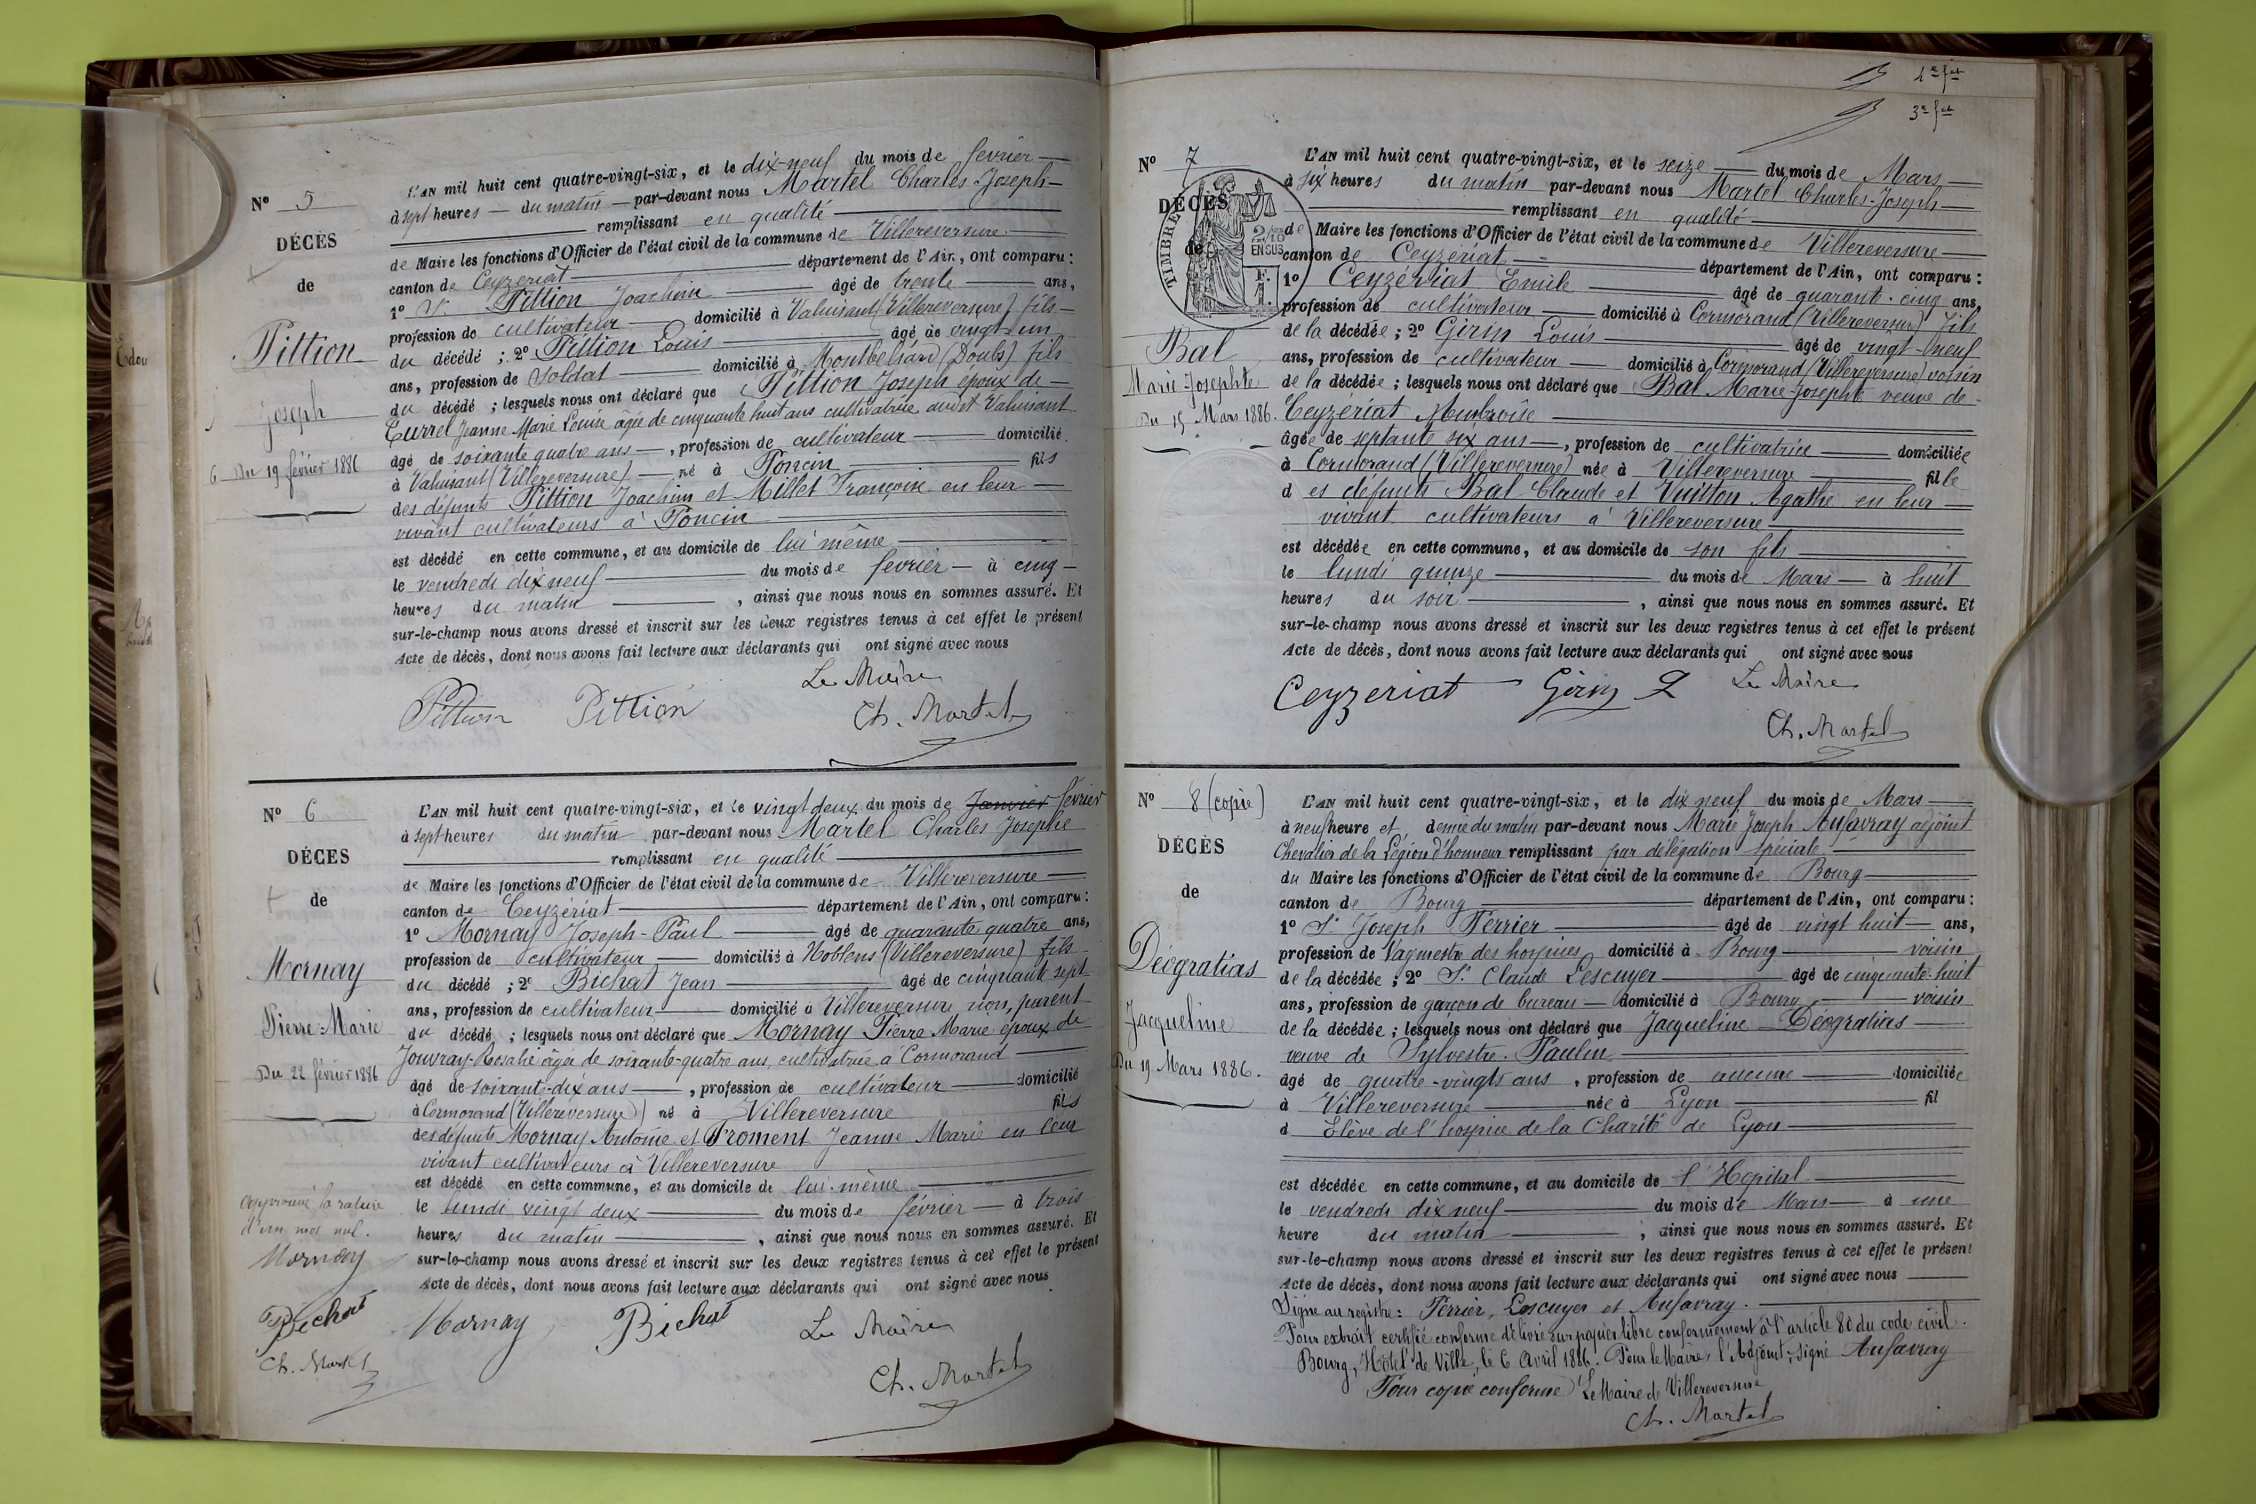 Nº 5
DÉCÈS
de
Pittion
Joseph
Du 19 février 1886
L'AN mil huit cent quatre-vingt-six, et le dix-neuf du mois de février
à sept heures du matin par-devant nous Martel Charles Joseph
remplissant en qualité
de Maire les fonctions d'Officier de l'état civil de la commune de Villereversure
canton de Ceyzériat département de l'Ain, ont comparu :
1º Sr Pittion Joachim âgé de trente ans,
profession de cultivateur domicilié à Valuisant (Villereversure) fils
du décédé ; 2º Pittion Louis âgé de vingt un
ans, profession de soldat domicilié à Montbéliard (Doubs) fils
du décédé ; lesquels nous ont déclaré que Pittion Joseph époux de
Turrel Jeanne Marie Louise âgée de cinquante huit ans cultivatrice audit Valuisant
âgé de soixante quatre ans, profession de cultivateur domicilié
à Valuisant (Villereversure) né à Poncin fils
des défunts Pittion Joachim et Millet Françoise en leur
vivant cultivateurs à Poncin
est décédé en cette commune, et au domicile de lui même
le vendredi dix neuf du mois de février à cinq
heures du matin, ainsi que nous nous en sommes assuré. Et
sur-le-champ nous avons dressé et inscrit sur les deux registres tenus à cet effet le présent
Acte de décès, dont nous avons fait lecture aux déclarants qui ont signé avec nous
Le Maire
Pittion Pittion Ch. Martel
Nº 6
DÉCÈS
de
Mornay
Pierre-Marie
Du 22 février 1886
L'AN mil huit cent quatre-vingt-six, et le vingt deux du mois de Janvier février
à sept heures du matin par-devant nous Martel Charles Josephe
remplissant en qualité
de Maire les fonctions d'Officier de l'état civil de la commune de Villereversure
canton de Ceyzériat département de l'Ain, ont comparu :
1º Mornay Joseph-Paul âgé de quarante quatre ans,
profession de cultivateur domicilié à Noblens (Villereversure) fils
du décédé ; 2º Bichat Jean âgé de cinquante sept
ans, profession de cultivateur domicilié à Villereversure non parent
du décédé ; lesquels nous ont déclaré que Mornay Pierre Marie époux de
Jouvray Rosalie âgée de soixante-quatre ans, cultivatrice à Cormorand
âgé de soixante-dix ans, profession de cultivateur domicilié
à Cormorand (Villereversure) né à Villereversure fils
des défunts Mornay Antoine et Froment Jeanne Marie en leur
vivant cultivateurs à Villereversure
est décédé en cette commune, et au domicile de lui-même
le lundi vingt deux du mois de février à trois
heures du matin, ainsi que nous nous en sommes assuré. Et
sur-le-champ nous avons dressé et inscrit sur les deux registres tenus à cet effet le présent
Acte de décès, dont nous avons fait lecture aux déclarants qui ont signé avec nous
Approuvé la rature
d'un mot nul.
Mornay
Bichat
Ch. Martel
Mornay Bichat Le Maire
Ch. Martel
Nº 7
DÉCÈS
de
TIMBRE
2/10
EN SUS
Bal
Marie-Josephte
Du 15 Mars 1886.
L'AN mil huit cent quatre-vingt-six, et le seize du mois de Mars
à six heures du matin par-devant nous Martel Charles-Joseph
remplissant en qualité
de Maire les fonctions d'Officier de l'état civil de la commune de Villereversure
canton de Ceyzériat département de l'Ain, ont comparu :
1º Ceyzériat Emile âgé de quarante-cinq ans,
profession de cultivateur domicilié à Cormorand (Villereversure) fils
de la décédée ; 2º Girin Louis âgé de vingt-neuf
ans, profession de cultivateur domicilié à Cormorand (Villereversure) voisin
de la décédée ; lesquels nous ont déclaré que Bal Marie-Josephte veuve de
Ceyzériat Ambroise
âgée de septante six ans, profession de cultivatrice domiciliée
à Cormorand (Villereversure) née à Villereversure fille
des défunts Bal Claude et Vuitton Agathe en leur
vivant cultivateurs à Villereversure
est décédée en cette commune, et au domicile de son fils
le lundi quinze du mois de Mars à huit
heures du soir, ainsi que nous nous en sommes assuré. Et
sur-le-champ nous avons dressé et inscrit sur les deux registres tenus à cet effet le présent
Acte de décès, dont nous avons fait lecture aux déclarants qui ont signé avec nous
Ceyzeriat Girin L Le Maire
Ch. Martel
Nº 8 (copie)
DÉCÈS
de
Déogratias
Jacqueline
Du 19 Mars 1886.
L'AN mil huit cent quatre-vingt-six, et le dix neuf du mois de Mars
à neuf heure et demie du matin par-devant nous Marie Joseph Aufavray adjoint
Chevalier de la Légion d'honneur remplissant par délégation spéciale
du Maire les fonctions d'Officier de l'état civil de la commune de Bourg
canton de Bourg département de l'Ain, ont comparu :
1º Sr Joseph Perrier âgé de vingt huit ans,
profession de Vaguemestre des hospices domicilié à Bourg voisin
de la décédée ; 2º Sr Claude Lescuyer âgé de cinquante-huit
ans, profession de garçon de bureau domicilié à Bourg voisin
de la décédée ; lesquels nous ont déclaré que Jacqueline Déogratias
veuve de Sylvestre Paulin
âgé de quatre-vingts ans, profession de aucune domiciliée
à Villereversure née à Lyon fil
d Elève de l'hospice de la Charité de Lyon
est décédée en cette commune, et au domicile de l'Hopital
le vendredi dix neuf du mois de Mars à une
heure du matin, ainsi que nous nous en sommes assuré. Et
sur-le-champ nous avons dressé et inscrit sur les deux registres tenus à cet effet le présent
Acte de décès, dont nous avons fait lecture aux déclarants qui ont signé avec nous
Signé au registre : Perrier, Lescuyer et Aufavray.
Pour extrait certifié conforme délivré sur papier libre conformément à l'article 80 du code civil.
Bourg, Hôtel de Ville, le 6 Avril 1886. Pour le Maire, l'Adjoint, signé Aufavray
Pour copie conforme Le Maire de Villereversure
Ch. Martel